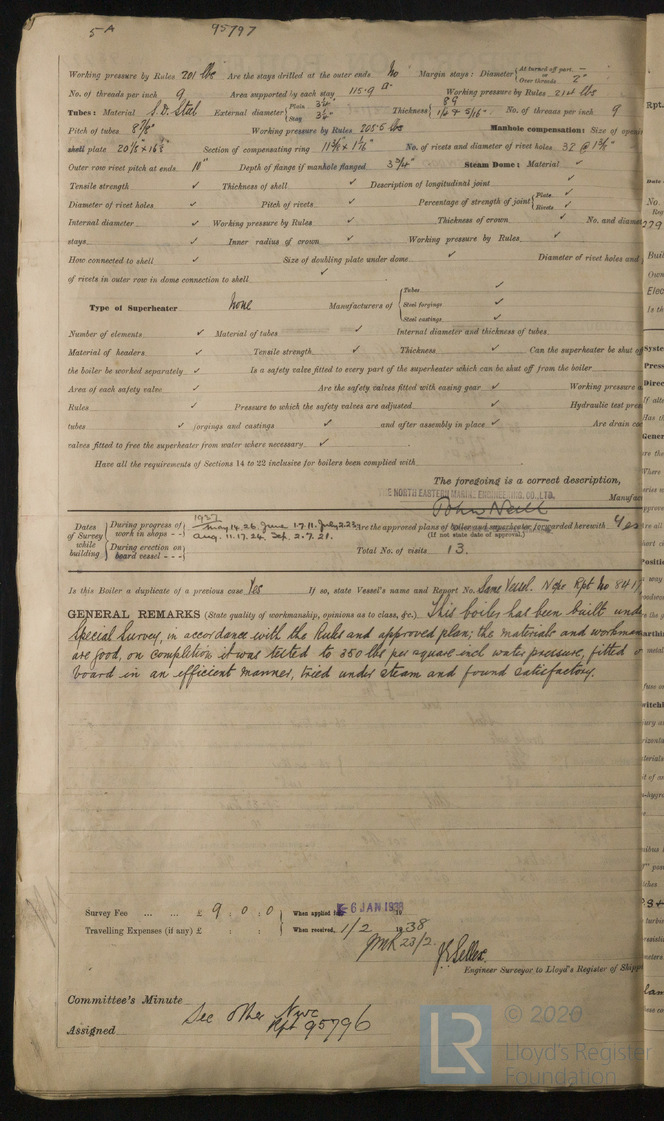 5A 95797
Working pressure by Rules 201 lbs Are the stays drilled at the outer ends No Margin stays: Diameter { At turned off part, — or Over threads 2"
No. of threads per inch 9 Area supported by each stay 115.9 □" Working pressure by Rules 214 lbs
Tubes: Material S.D. Steel External diameter { Plain 3½" Stay 3½" Thickness { 89 1/4 & 5/16" No. of threads per inch 9
Pitch of tubes Working pressure by Rules 205.5 lbs Manhole compensation: Size of
shell plate Section of compensating ring No. of rivets and diameter of rivet holes 32 @
Outer row rivet pitch at ends 10" Depth of flange if manhole flanged 3¾" Steam Dome: Material ✓
Tensile strength ✓ Thickness of shell ✓ Description of longitudinal joint ✓
Diameter of rivet holes ✓ Pitch of rivets ✓ Percentage of strength of joint { Plate ✓ Rivets ✓
Internal diameter ✓ Working pressure by Rules ✓ Thickness of crown ✓ No. and
stays ✓ Inner radius of crown ✓ Working pressure by Rules ✓
How connected to shell ✓ Size of doubling plate under dome ✓ Diameter of rivet holes and
of rivets in outer row in dome connection to shell ✓
Type of Superheater None Manufacturers of { Tubes ✓ Steel forgings ✓ Steel castings ✓
Number of elements ✓ Material of tubes ✓ Internal diameter and thickness of tubes
Material of headers ✓ Tensile strength ✓ Thickness ✓ Can the superheater be shut
the boiler be worked separately ✓ Is a safety valve fitted to every part of the superheater which can be shut off from the boiler
Area of each safety valve ✓ Are the safety valves fitted with easing gear ✓ Working pressure
Rules ✓ Pressure to which the safety valves are adjusted ✓ Hydraulic test
tubes ✓ forgings and castings ✓ and after assembly in place ✓ Are drain
valves fitted to free the superheater from water where necessary ✓
Have all the requirements of Sections 14 to 22 inclusive for boilers been complied with
The foregoing is a correct description,
THE NORTH EASTERN MARINE ENGINEERING CO., LTD.
John Neill
Dates of Survey while building { During progress of work in shops - - } 1937 May. 14. 26. June 1. 7. 11. July. 2. 23. Aug. 11. 17. 24. Sep. 2. 7. 21. Are the approved plans of boiler and superheater forwarded herewith Yes
(If not state date of approval.)
{ During erection on board vessel - - - } Total No. of visits 13.
Is this Boiler a duplicate of a previous case Yes If so, state Vessel's name and Report No. Same Vessel. Nwc Rpt No
GENERAL REMARKS (State quality of workmanship, opinions as to class, &c.) This boiler has been built
Special Survey, in accordance with the Rules and approved plan; the materials and
are good, on completion it was tested to 350 lbs per square inch water pressure, fitted
board in an efficient manner, tried under steam and found satisfactory.
Survey Fee ... ... £ 9 : 0 : 0 } When applied for 6 JAN 1938
Travelling Expenses (if any) £ : : } When received, 1/2 1938
23/2
Engineer Surveyor to Lloyd's Register of
Committee's Minute
Assigned See other Nwc Rpt 95796
LR © 2020
Lloyd's Register
Foundation